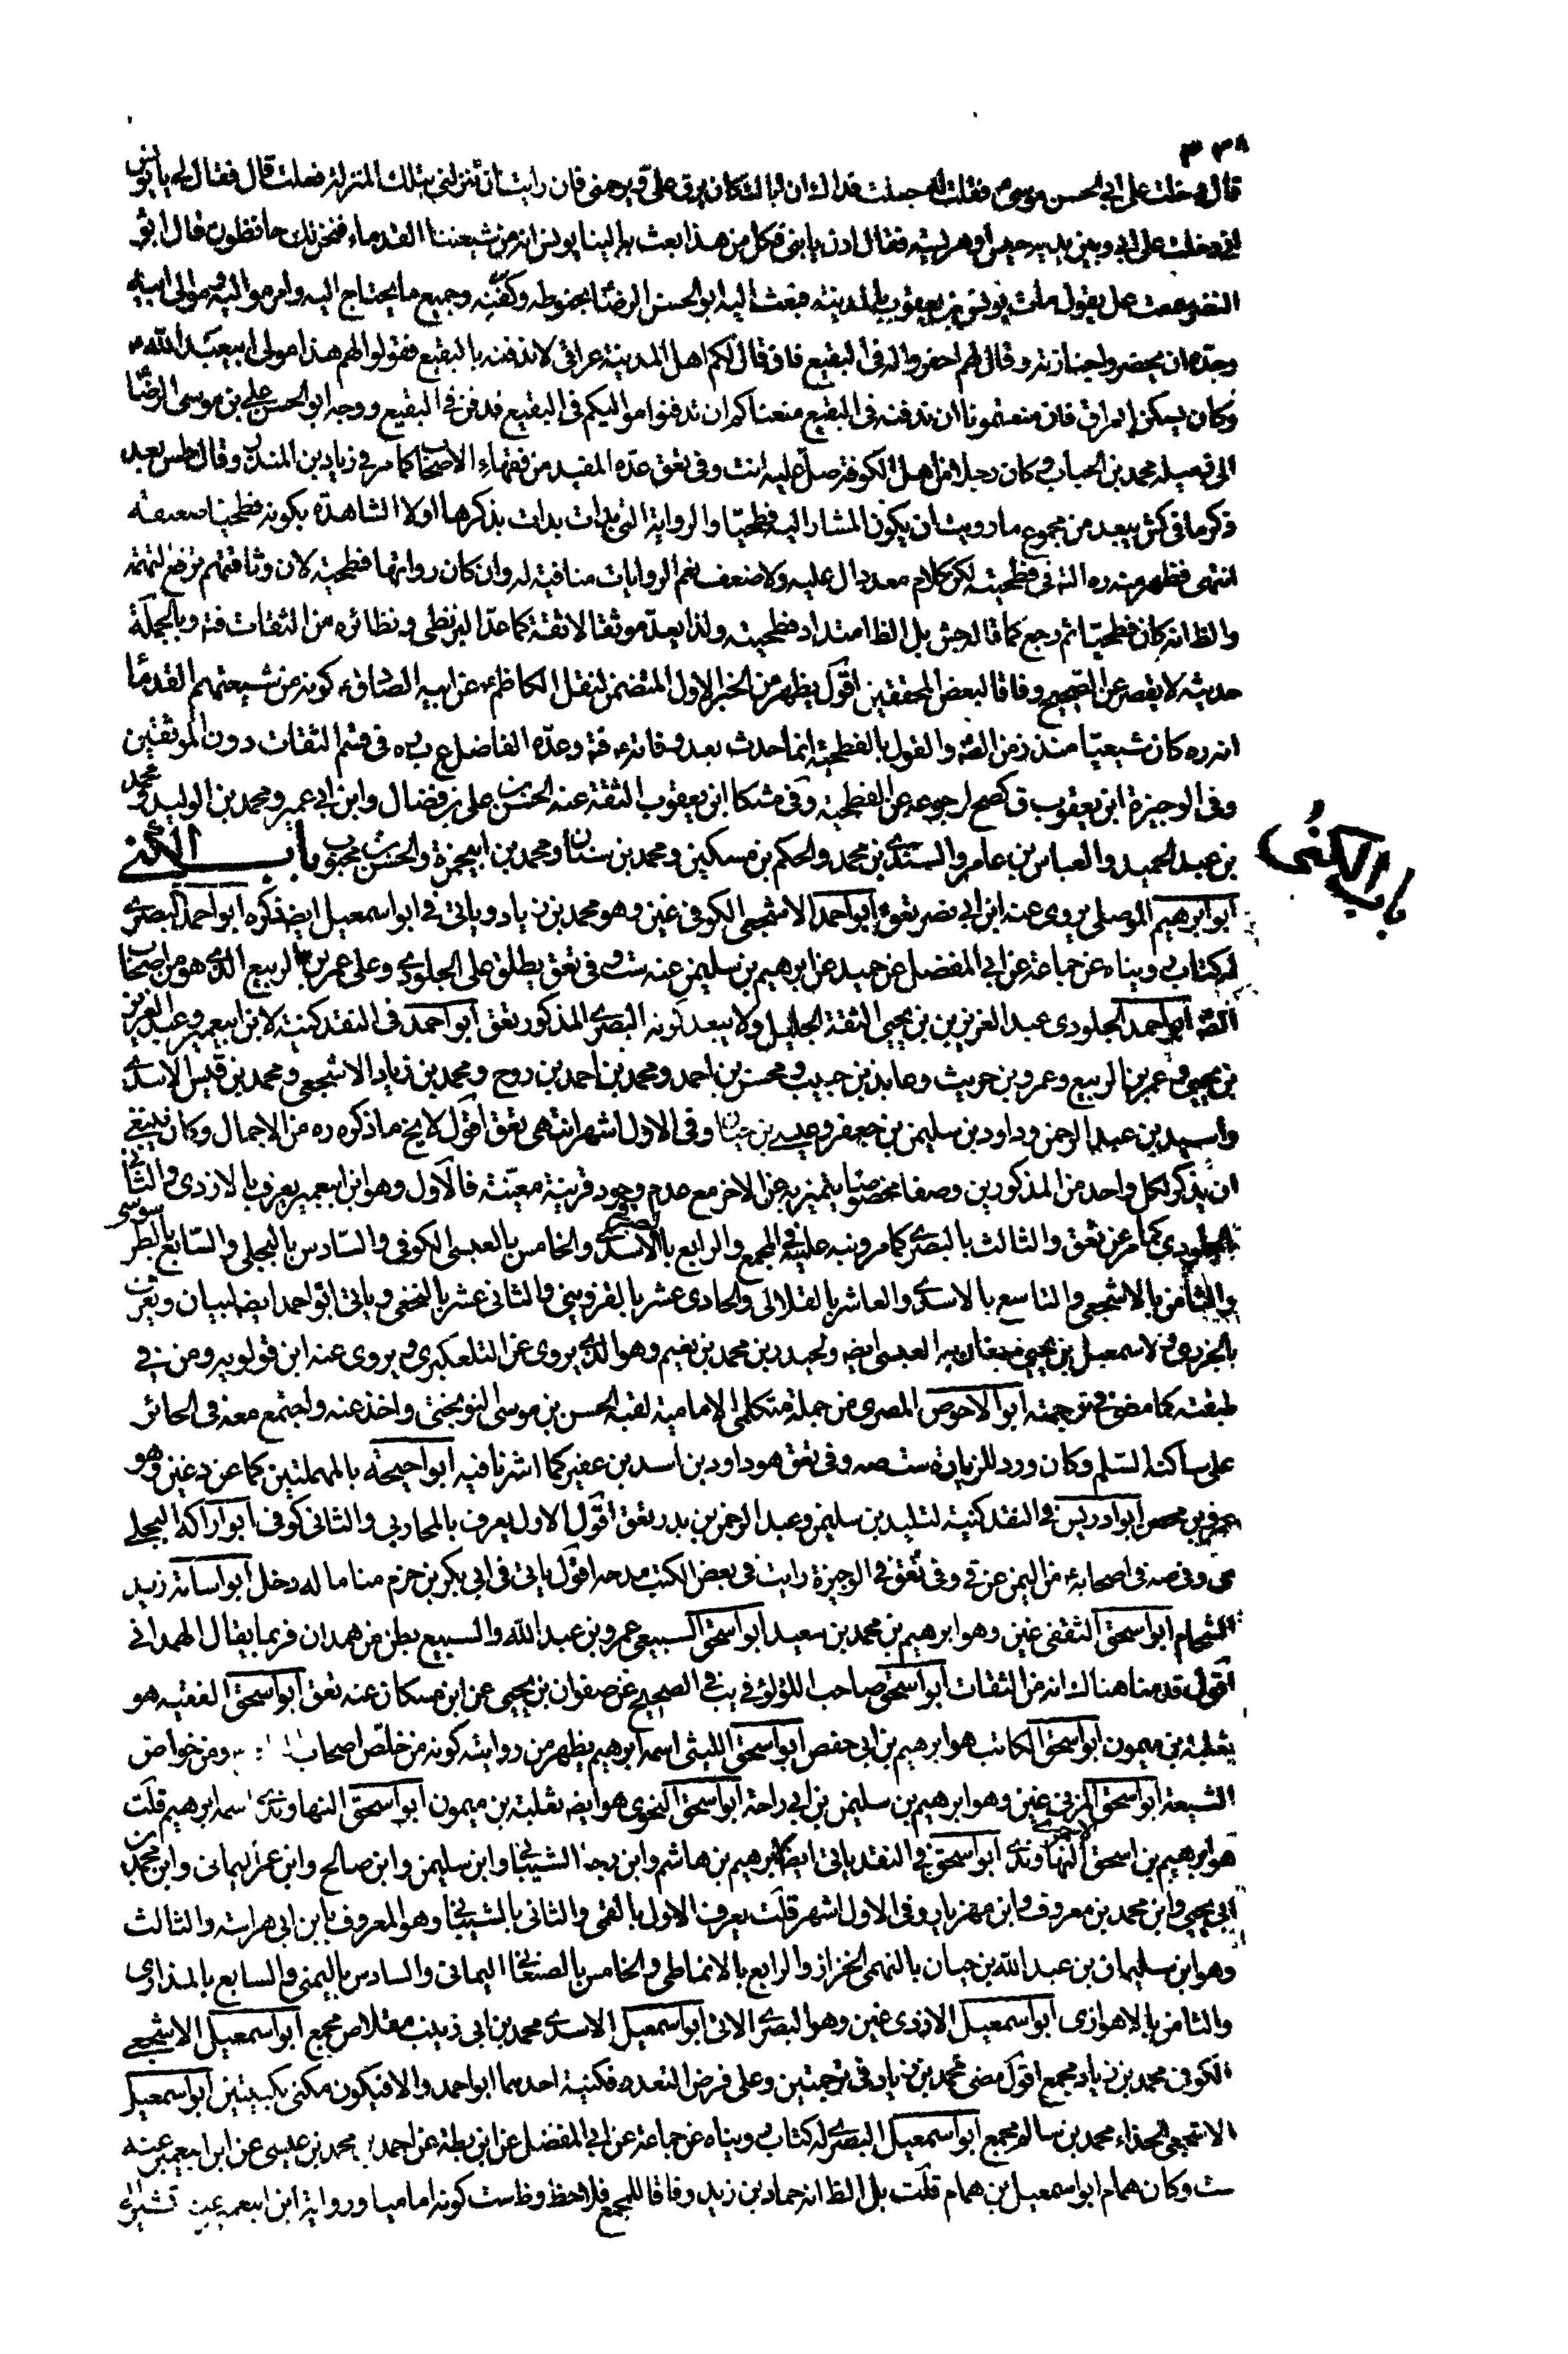 ٣٣٨
قال دخلت على ابى الحسن موسى ع فقلت له جعلت فداك ان اباك كان يرق على ويرحمنى فان رايت ان تنزلنى بتلك المنزلة فعلت قال فقال لى يا يونس
انى دخلت على ابى وبين يديه حيس او هريسة فقال ادن يا بنى فكل من هذا بعث به الينا يونس انه من شيعتنا القدماء فنحن لك حافظون قال ابو
النضر سمعت على يقول مات يونس بن يعقوب بالمدينة فبعث اليه ابو الحسن الرضا بحنوطه وكفنه وجميع ما يحتاج اليه وامر مواليه وموالى ابيه
وجده ان يحضروا جنازته وقال لهم احفروا له فى البقيع فان قال لكم اهل المدينة عراقى لا ندفنه بالبقيع فقولوا لهم هذا مولى ابيعبد الله
وكان يسكن العراق فان منعتمونا ان ندفنه فى البقيع منعناكم ان تدفنوا مواليكم فى البقيع فدفن فى البقيع ووجه ابو الحسن على بن موسى الرضا
الى زميله محمد بن الحباب وكان رجلا من اهل الكوفة صل عليه انت وفى تعق عده المفيد من فقهاء الاصحاب كما مر فى زياد بن المنذر وقال طس بعد
ذكر ما فى كش يبعد من مجموع ما رويت ان يكون المشار اليه فطحيا والرواية التى بدات بذكرها اولا الشاهدة بكونه فطحيا ضعيفة
انتهى فظهر منه ره التامل فى فطحيته لكن كلام معد دال عليه ولا ضعف نعم الروايات منافية له وان كان رواتها فطحية لان وثاقتهم ترفع التهمة
والظ انه كان فطحيا ثم رجع كما قاله جش بل الظ امتداد فطحيته ولذا يعد موثقا لا ثقة كما عد البزنطى ونظائره من الثقات فته وبالجملة
حديثه لا يقصر عن الصحيح وفاقا لبعض المحققين اقول يظهر من الخبر الاول المتضمن لنقل الكاظم ع عن ابيه الصادق ع كونه من شيعتهم القدماء
انه ره كان شيعيا منذ زمن الصادق والقول بالفطحية انما حدث بعد وفاته ع فته وعده الفاضل ع ب ره فى قسم الثقات دون الموثقين
وفى الوجيزة ابن يعقوب ق كصح لرجوعه عن الفطحية وفى مشكا ابن يعقوب الثقة عنه الحسن بن على بن فضال وابن ابى عمير ومحمد بن الوليد ومحمد
بن عبد الحميد والعباس بن عامر والسندى بن محمد والحكم بن مسكين ومحمد بن سنان ومحمد بن ابيحمزة والحسن بن محبوب باب الكنى
باب الكنى
ابو ابرهيم الموصلى يروى عنه ابن ابى نصر تعق ابو احمد الاشجعى الكوفى غين وهو محمد بن زياد وياتى فى ابو اسمعيل ايضا ذكره ابو احمد البصرى
له كتاب رويناه عن جماعة عن ابى المفضل عن حميد عن ابرهيم بن سليمن عنه ست وفى تعق يطلق على الجلودى وعلى عمر بن الربيع الذى هو من اصحاب
الصادق ابو احمد الجلودى عبد العزيز بن يحيى الثقة الجليل ولا يبعد كونه البصرى المذكور تعق ابو احمد فى النقد كنية لابن ابيعمير وعبد العزيز
بن يحيى وعمر بن الربيع وعمرو بن حريث وعابد بن حبيب ومحسن بن احمد ومحمد بن احمد بن روح ومحمد بن زياد الاشجعى ومحمد بن قيس الاسدى
واسيد بن عبد الرحمن وداود بن سليمن بن جعفر وعيسى بن حيان وفى الاول اشهر انتهى تعق اقول لا يخ ما ذكره ره من الاجمال وكان ينبغى
ان يذكر لكل واحد من المذكورين وصفا مخصوصا يتميز به عن الاخر مع عدم وجود قرينة معينة فالاول وهو ابن ابيعمير يعرف بالازدى والثانى
بالجلودى كما مر عن تعق والثالث بالبصرى كما مر ونبه عليه فى المجمع والرابع بالاسدى والخامس بالعبسى الكوفى والسادس بالبجلى والسابع بالطرسوسى
والثامن بالاشجعى والتاسع بالاسدى والعاشر بالقلالى والحادى عشر بالقزوينى والثانى عشر بالنخعى وياتى ابو احمد ايضا لبيان ويعرف
بالجزرى ولاسمعيل بن يحيى العبسى ايضا ولحيدر بن محمد بن نعيم وهو الذى يروى عن التلعكبرى ويروى عنه ابن قولويه ومن فى
طبقته كما مضى فى ترجمته ابو الاحوص المصرى من جملة متكلمى الامامية لقيه الحسن بن موسى النوبختى واخذ عنه واجتمع معه فى الحائر
على ساكنه السلم وكان ورد للزيارة ست صه وفى تعق هو داود بن اسد بن عفير كما اشرنا فيه ابو احيحة بالمهملتين كما عن د غين وهو
عمرو بن محصن ابو ادريس فى النقد كنية لتليد بن سليمن وعبد الرحمن بن بدر تعق اقول الاول يعرف بالمحاربى والثانى كوفى ابو اراكة البجلى
ى وفى صه فى اصحابه ع من اليمن عن قى وفى تعق فى الوجيزة رايت فى بعض الكتب مدحه اقول ياتى فى ابى بكر بن حزم منا ما له دخل ابو اسامة زيد
الشحام ابو اسحق الثقفى غين وهو ابرهيم بن محمد بن سعيد ابو اسحق السبيعى عمرو بن عبد الله والسبيع بطن من همدان فربما يقال الهمدانى
اقول قدمنا هناك انه من الثقات ابو اسحق صاحب اللؤلؤ فى يب فى الصحيح عن صفوان بن يحيى عن ابن مسكان عنه تعق ابو اسحق الفقيه هو
ثعلبة بن ميمون ابو اسحق الكاتب هو ابرهيم بن ابى حفص ابو اسحق الليثى اسمه ابرهيم يظهر من روايته كونه من خلص اصحاب ومن خواص
الشيعة ابو اسحق المزنى غين وهو ابرهيم بن سليمن بن ابى راحة ابو اسحق النحوى هو ايضا ثعلبة بن ميمون ابو اسحق النهاوندى اسمه ابرهيم قلت
هو ابرهيم بن اسحق الاحمرى النهاوندى ابو اسحق فى النقد ياتى ايضا لابرهيم بن هاشم وابن رجا الشيبانى وابن سليمن وابن صالح وابن عمر اليمانى وابن محمد بن
ابى يحيى وابن محمد بن معروف وابن مهزيار وفى الاول اشهر قلت يعرف الاول بالقمى والثانى بالشيبانى وهو المعروف بابن ابى هراسة والثالث
وهو ابن سليمان بن عبد الله بن حيان بالنهمى الخزاز والرابع بالانماطى والخامس بالصنعانى اليمانى والسادس باليمنى والسابع بالمذارى
والثامن بالاهوازى ابو اسمعيل الازدى غين وهو البصرى الاتى ابو اسمعيل الاسدى محمد بن ابى زينب مقلاص مجمع ابو اسمعيل الاشجعى
الكوفى محمد بن زياد مجمع اقول مضى محمد بن زياد فى ترجمتين وعلى فرض التعدد فكنية احدهما ابو احمد والا فيكون مكنى بكنيتين ابو اسمعيل
الاشجعى الحذاء محمد بن سالم مجمع ابو اسمعيل البصرى له كتاب رويناه عن جماعة عن ابى المفضل عن ابن بطة عن احمد بن محمد بن عيسى عن ابن ابيعمير عنه
ست وكان همام ابو اسمعيل بن همام قلت بل الظ انه حماد بن زيد وفاقا للمجمع فلاحظ وظ ست كونه اماميا ورواية ابن ابيعمير عنه تشير الى